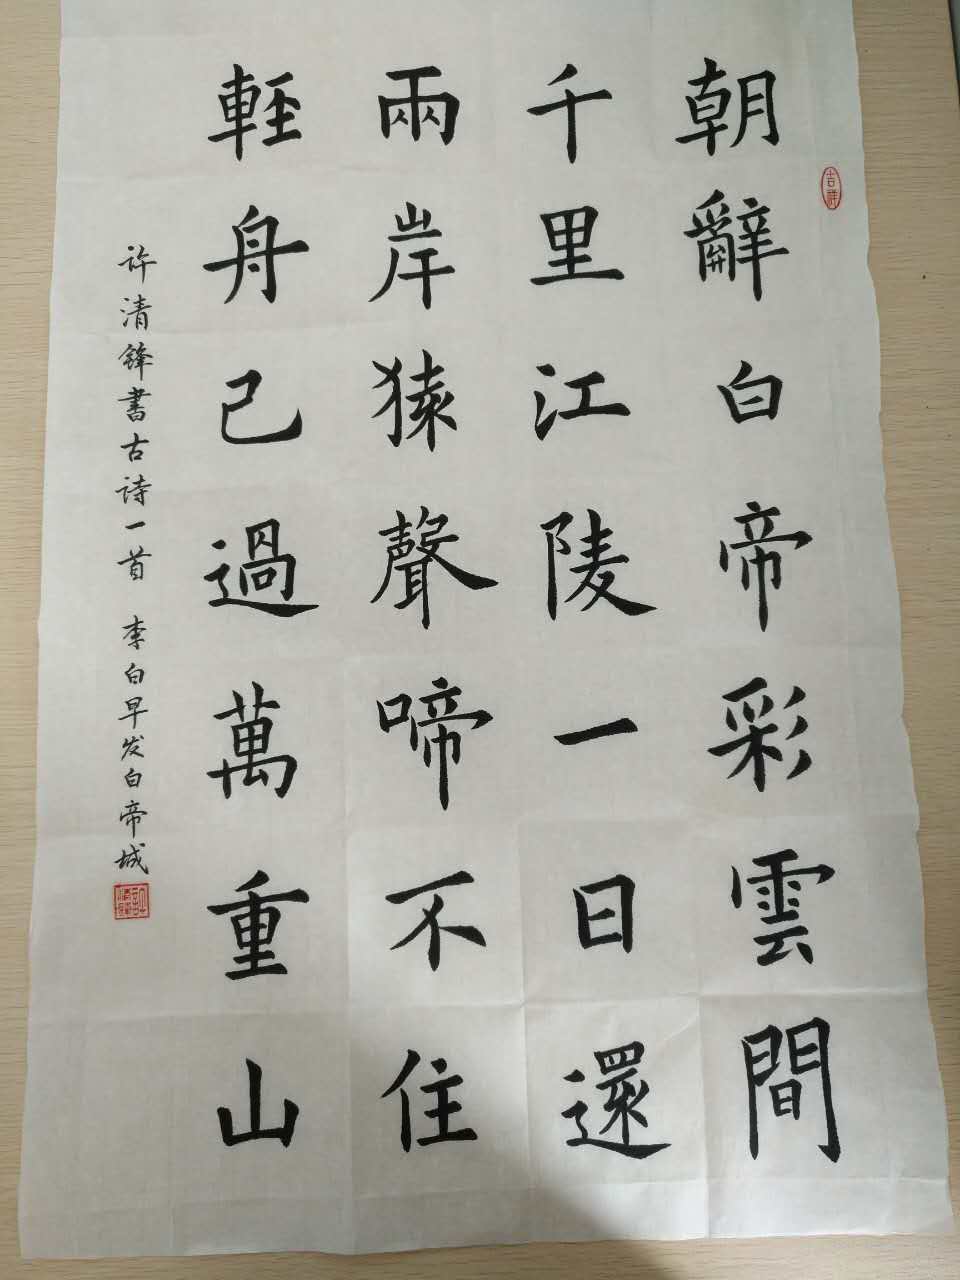 朝辭白帝彩雲間
吉祥
千里江陵一日還
兩岸猿聲啼不住
輕舟已過萬重山
许清鋒書古诗一首 李白早发白帝城